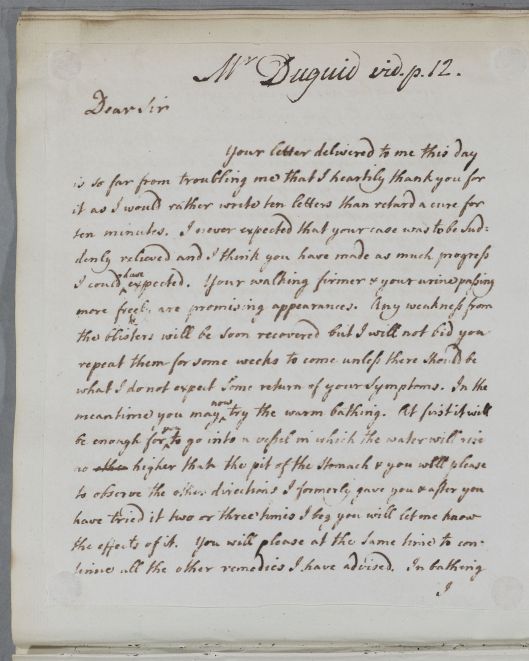 Mr Duguid vid. p. 12.
Dear Sir
Your letter delivered to me this day
is so far from troubling me that I heartily thank you for
it as I would rather write ten letters than retard a cure for
ten minutes. I never expected that your case was to be sud-
denly relieved and I think you have made as much progress
I could have expected. Your walking firmer & your urine passing
more freely are promising appearances. Any weakness from
the blisters will be soon recovered but I will not bid you
repeat them for some weeks to come unless there should be
what I do not expect some return of your symptoms. In the
meantime you may now try the warm bathing. At first it will
be enough for you to go into a vessel in which the water will rise
no other higher than the pit of the stomach & you will please
to observe the other directions I formerly gave you & after you
have tried it two or three times I beg you will let me know
the effects of it. You will please at the same time to con-
tinue all the other remedies I have advised. In bathing
I